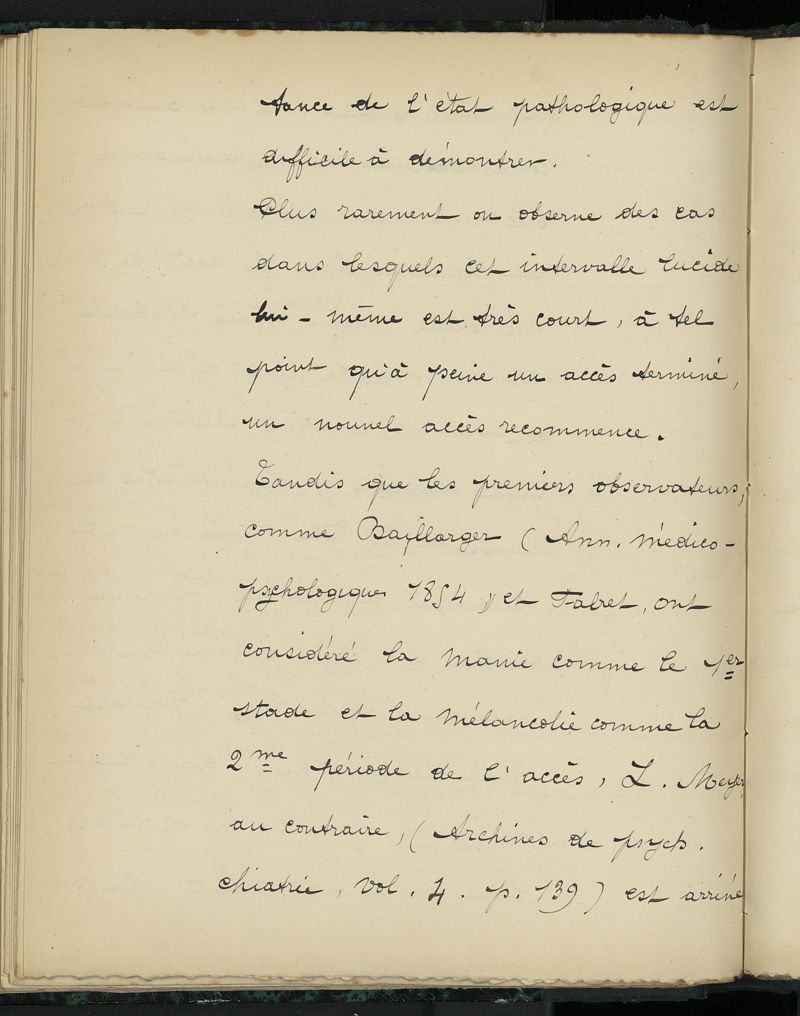 tance de l'état pathologique est
difficile à démontrer.
Plus rarement on observe des cas
dans lesquels cet intervalle lucide
lui-même est très court, à tel
point qu'à peine un accès terminé,
un nouvel accès recommence.
Tandis que les premiers observateurs,
comme Baillarger (Ann. médico-
psychologiques 1854) et Falret, ont
considéré la manie comme le 1er
stade et la mélancolie comme la
2me période de l'accès, L. Meyer,
au contraire, (Archives de psych.
chiatrie, vol. 4. p. 139) est arrivé